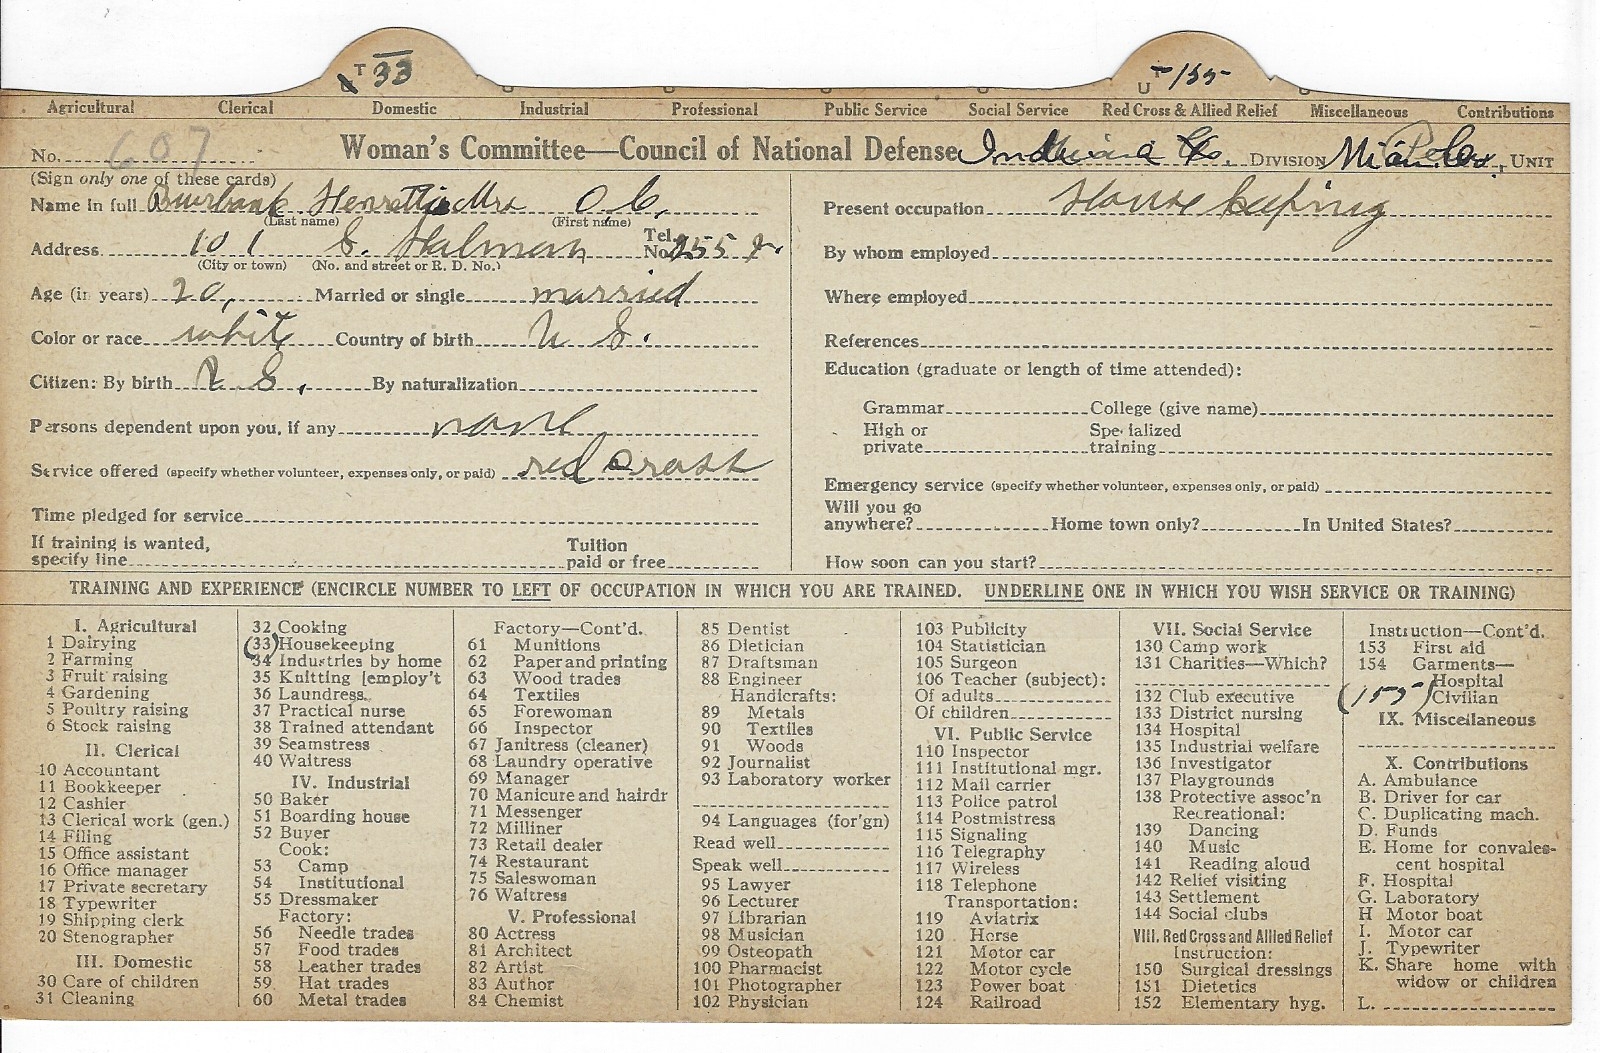 T 33
U T 155
Agricultural Clerical Domestic Industrial Professional Public Service Social Service Red Cross & Allied Relief Miscellaneous Contributions
No. 607 Woman's Committee—Council of National Defense Indiana Co. DIVISION Miami UNIT
(Sign only one of these cards)
Name in full Burbank Henrettia Mrs O. C.
(Last name) (First name)
Address 101 S. Holman Tel. No. 255
(City or town) (No. and street or R. D. No.)
Age (in years) 20, Married or single married
Color or race white Country of birth U S.
Citizen: By birth U S. By naturalization
Persons dependent upon you, if any none
Service offered (specify whether volunteer, expenses only, or paid) red cross
Time pledged for service
If training is wanted,
specify line Tuition paid or free
Present occupation House keeping
By whom employed
Where employed
References
Education (graduate or length of time attended):
Grammar College (give name)
High or private Specialized training
Emergency service (specify whether volunteer, expenses only, or paid)
Will you go
anywhere? Home town only? In United States?
How soon can you start?
TRAINING AND EXPERIENCE (ENCIRCLE NUMBER TO LEFT OF OCCUPATION IN WHICH YOU ARE TRAINED. UNDERLINE ONE IN WHICH YOU WISH SERVICE OR TRAINING)
I. Agricultural
1 Dairying
2 Farming
3 Fruit raising
4 Gardening
5 Poultry raising
6 Stock raising
II. Clerical
10 Accountant
11 Bookkeeper
12 Cashier
13 Clerical work (gen.)
14 Filing
15 Office assistant
16 Office manager
17 Private secretary
18 Typewriter
19 Shipping clerk
20 Stenographer
III. Domestic
30 Care of children
31 Cleaning
32 Cooking
(33) Housekeeping
34 Industries by home
35 Knitting [employ't
36 Laundress
37 Practical nurse
38 Trained attendant
39 Seamstress
40 Waitress
IV. Industrial
50 Baker
51 Boarding house
52 Buyer
Cook:
53 Camp
54 Institutional
55 Dressmaker
Factory:
56 Needle trades
57 Food trades
58 Leather trades
59 Hat trades
60 Metal trades
Factory—Cont'd.
61 Munitions
62 Paper and printing
63 Wood trades
64 Textiles
65 Forewoman
66 Inspector
67 Janitress (cleaner)
68 Laundry operative
69 Manager
70 Manicure and hairdr
71 Messenger
72 Milliner
73 Retail dealer
74 Restaurant
75 Saleswoman
76 Waitress
V. Professional
80 Actress
81 Architect
82 Artist
83 Author
84 Chemist
85 Dentist
86 Dietician
87 Draftsman
88 Engineer
Handicrafts:
89 Metals
90 Textiles
91 Woods
92 Journalist
93 Laboratory worker
94 Languages (for'gn)
Read well
Speak well
95 Lawyer
96 Lecturer
97 Librarian
98 Musician
99 Osteopath
100 Pharmacist
101 Photographer
102 Physician
103 Publicity
104 Statistician
105 Surgeon
106 Teacher (subject):
Of adults
Of children
VI. Public Service
110 Inspector
111 Institutional mgr.
112 Mail carrier
113 Police patrol
114 Postmistress
115 Signaling
116 Telegraphy
117 Wireless
118 Telephone
Transportation:
119 Aviatrix
120 Horse
121 Motor car
122 Motor cycle
123 Power boat
124 Railroad
VII. Social Service
130 Camp work
131 Charities—Which?
132 Club executive
133 District nursing
134 Hospital
135 Industrial welfare
136 Investigator
137 Playgrounds
138 Protective assoc'n
Recreational:
139 Dancing
140 Music
141 Reading aloud
142 Relief visiting
143 Settlement
144 Social clubs
VIII. Red Cross and Allied Relief
Instruction:
150 Surgical dressings
151 Dietetics
152 Elementary hyg.
Instruction—Cont'd.
153 First aid
154 Garments—
Hospital
(155) Civilian
IX. Miscellaneous
X. Contributions
A. Ambulance
B. Driver for car
C. Duplicating mach.
D. Funds
E. Home for convales-
cent hospital
F. Hospital
G. Laboratory
H Motor boat
I. Motor car
J. Typewriter
K. Share home with
widow or children
L.